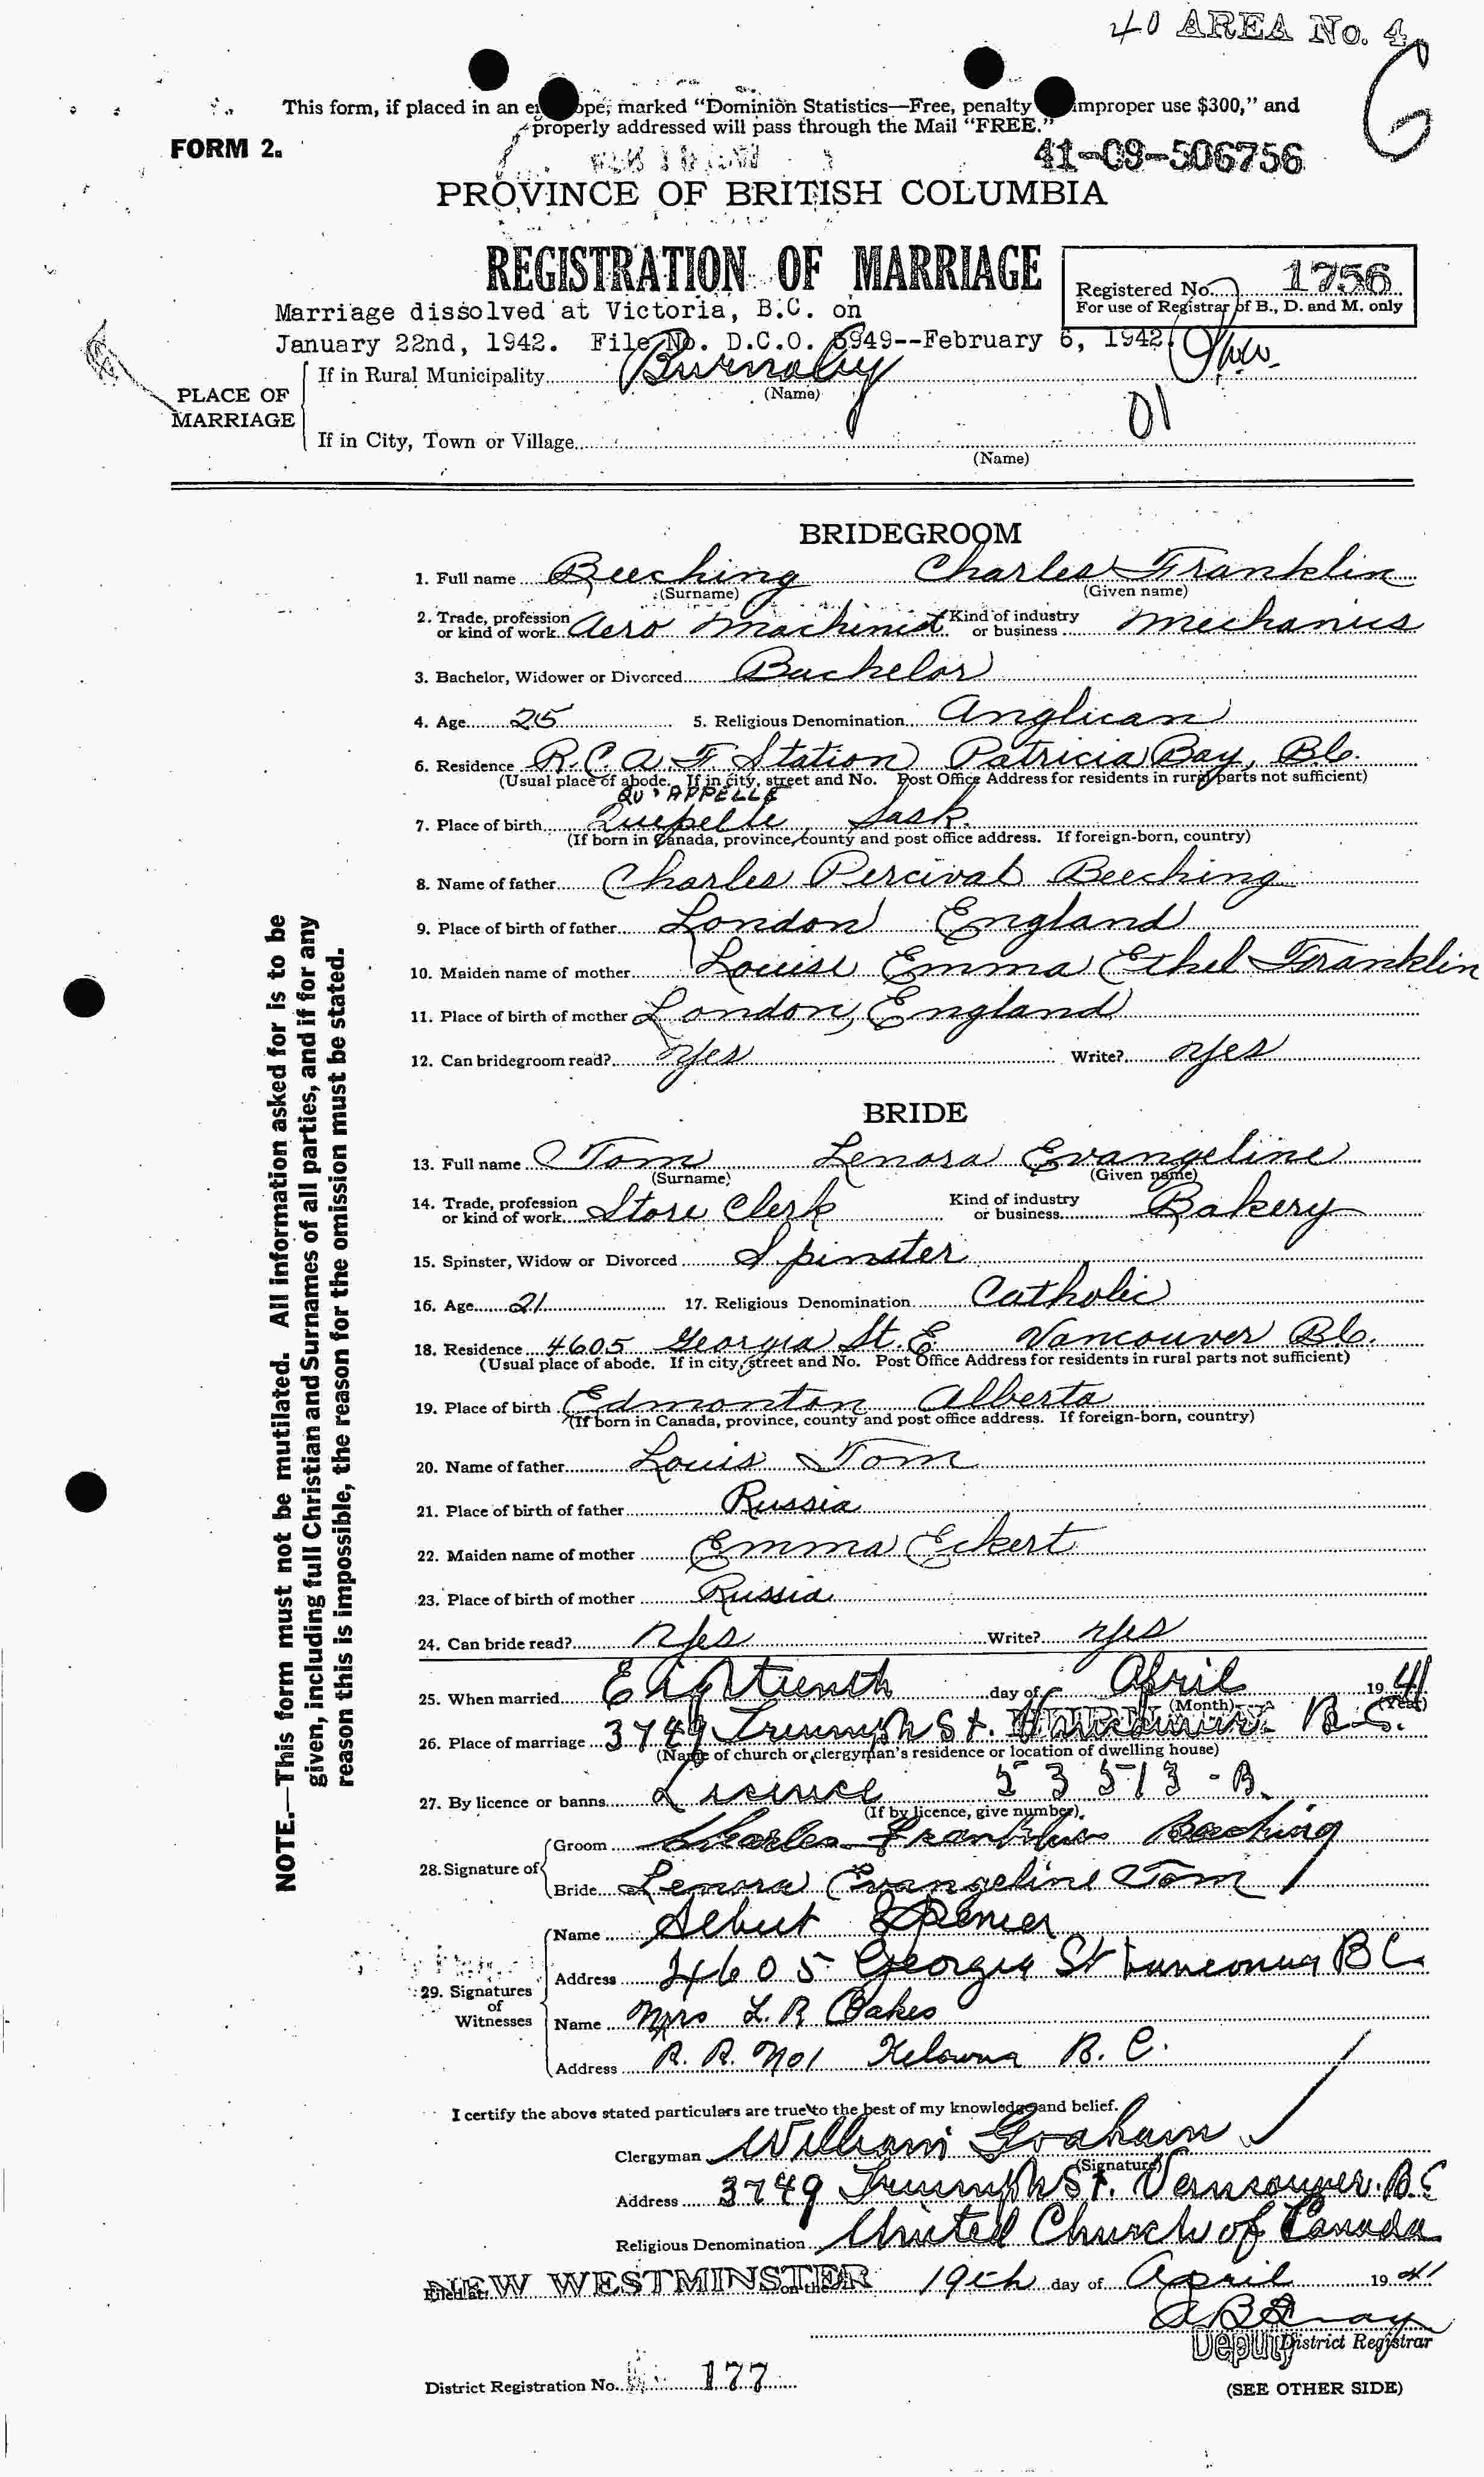 40 AREA No. 4
G
This form, if placed in an e ope, marked "Dominion Statistics—Free, penalty improper use $300," and
properly addressed will pass through the Mail "FREE."
FORM 2.
41-09-506756
PROVINCE OF BRITISH COLUMBIA
REGISTRATION OF MARRIAGE
Registered No. 1756
For use of Registrar of B., D. and M. only
Marriage dissolved at Victoria, B.C. on
January 22nd, 1942. File No. D.C.O. 8949--February 6, 1942.
PLACE OF MARRIAGE
If in Rural Municipality Burnaby
(Name)
01
If in City, Town or Village
(Name)
BRIDEGROOM
1. Full name Beeching Charles Franklin
(Surname) (Given name)
2. Trade, profession or kind of work Aero Machinist Kind of industry or business Mechanics
3. Bachelor, Widower or Divorced Bachelor
4. Age 25 5. Religious Denomination Anglican
6. Residence R.C.A.F. Station Patricia Bay, B.C.
(Usual place of abode. If in city, street and No. Post Office Address for residents in rural parts not sufficient)
QU'APPELLE
7. Place of birth Quepelle, Sask.
(If born in Canada, province, county and post office address. If foreign-born, country)
8. Name of father Charles Percival Beeching
9. Place of birth of father London England
10. Maiden name of mother Louise Emma Ethel Franklin
11. Place of birth of mother London, England
12. Can bridegroom read? Yes Write? Yes
BRIDE
13. Full name Tom Lenora Evangeline
(Surname) (Given name)
14. Trade, profession or kind of work Store Clerk Kind of industry or business Bakery
15. Spinster, Widow or Divorced Spinster
16. Age 21 17. Religious Denomination Catholic
18. Residence 4605 Georgia St. E. Vancouver B.C.
(Usual place of abode. If in city, street and No. Post Office Address for residents in rural parts not sufficient)
19. Place of birth Edmonton Alberta
(If born in Canada, province, county and post office address. If foreign-born, country)
20. Name of father Louis Tom
21. Place of birth of father Russia
22. Maiden name of mother Emma Eckert
23. Place of birth of mother Russia
24. Can bride read? Yes Write? Yes
25. When married Eighteenth day of April 1941
(Month) (Year)
26. Place of marriage 3749 Triumph St. B.C.
(Name of church or clergyman's residence or location of dwelling house)
27. By licence or banns Licence 53513-B
(If by licence, give number).
28. Signature of
Groom Charles Franklin Beeching
Bride Lenora Evangeline Tom
29. Signatures of Witnesses
Name Spencer
Address 4605 Georgia St Vancouver B C
Name Mrs L. R Oakes
Address R. R. No 1 Kelowna B. C.
I certify the above stated particulars are true to the best of my knowledge and belief.
Clergyman William Graham
(Signature)
Address 3749 Triumph St. Vancouver. B.C
Religious Denomination United Church of Canada
Filed at NEW WESTMINSTER on the 19th day of April 1941
A B Gray
Deputy District Registrar
District Registration No. 177
(SEE OTHER SIDE)
NOTE.—This form must not be mutilated. All information asked for is to be
given, including full Christian and Surnames of all parties, and if for any
reason this is impossible, the reason for the omission must be stated.